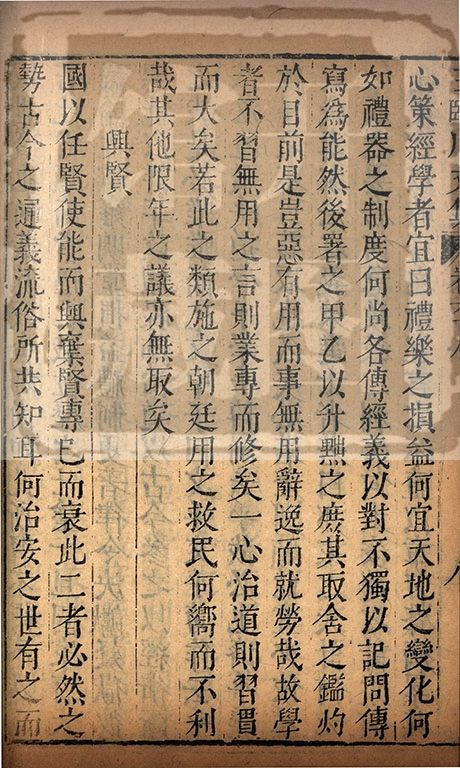 心策經學者宜曰禮樂之損益何宜天地之變化何
如禮器之制度何尚各傅經義以對不獨以記問傳
寫為能然後署之甲乙以升黜之庶其取舍之鑑灼
於目前是豈惡有用而事無用辭逸而就勞哉故學
者不習無用之言則業專而修矣一心治道則習貫
而大矣若此之類施之朝廷用之救民何嚮而不利
哉其他限年之議亦無取矣
興賢
國以任賢使能而興棄賢專已而衰此二者必然之
勢古今之通義流俗所共知耳何治安之世有之而